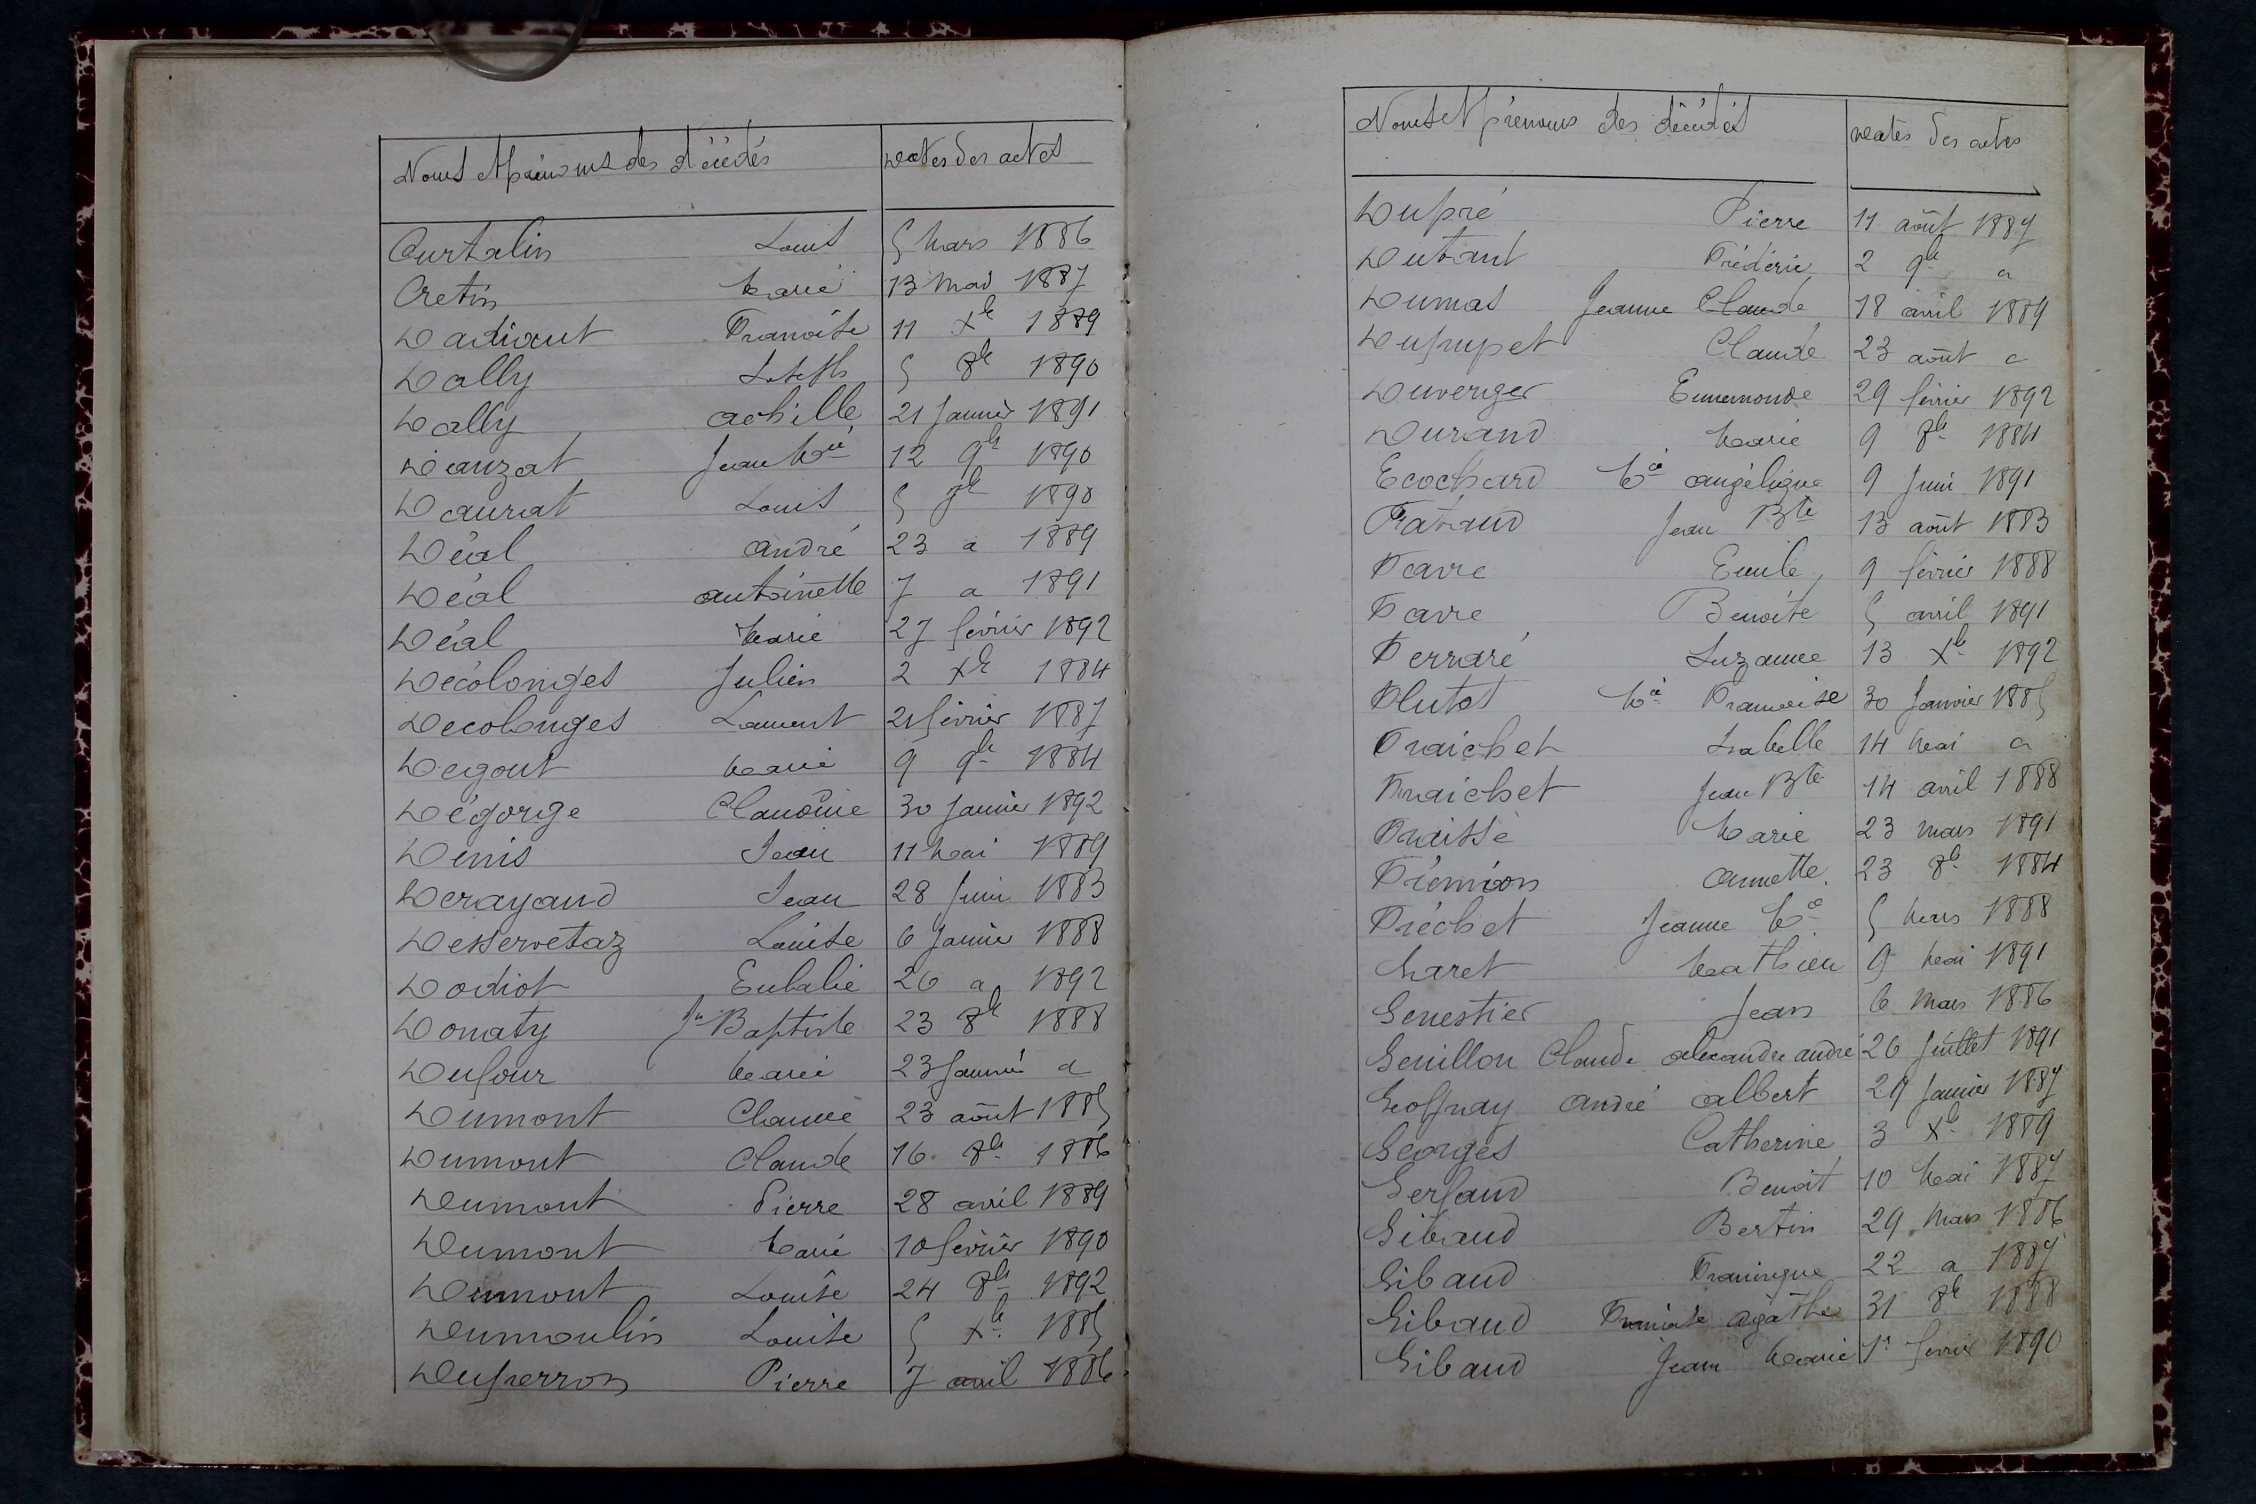 Noms et prénoms des décédés Dates des actes
Curtalin Louis 5 Mars 1886
Cretin Marie 13 Mai 1887
Dadiant Françoise 11 Xbre 1889
Dally Joseph 5 8bre 1890
Dally Achille 21 Janvier 1891
Dauzat Jean Mie 12 9bre 1890
Daurat Louis 5 7bre 1890
Déal André 23 d 1889
Déal Antoinette 7 d 1891
Déal Marie 27 février 1892
Decolonges Julien 2 Xbre 1884
Decolonges Laurent 21 février 1887
Degout Marie 9 9bre 1884
Dégorge Claudine 30 Janvier 1892
Denis Jean 11 Mai 1889
Derayaud Jean 28 Juin 1883
Desservetaz Louise 6 Janvier 1888
Dodiot Eulalie 26 d 1892
Donaty Jn Baptiste 23 8bre 1888
Dufour Marie 23 Janvier d
Dumont 23 août 1885
Dumont Claude 16 8bre 1886
Dumont Pierre 28 avril 1889
Dumont Marie 10 février 1890
Dumont Louise 24 8bre 1892
Dumoulin Louise 5 Xbre 1885
Duperron Pierre 7 avril 1886
Noms et prénoms des décédés Dates des actes
Dupré Pierre 11 août 1887
Dutant Frédéric 2 9bre d
Dumas Jeanne Claude 18 avril 1889
Dupupet Claude 23 août d
Duverger Ennemonde 29 février 1892
Durand Marie 9 8bre 1884
Ecochard Mie Angélique 9 Juin 1891
Jean Bte 13 août 1883
Favre Emile 9 février 1888
Favre Benoite 5 avril 1891
Ferraré Suzanne 13 Xbre 1892
Flutot Mie Françoise 30 Janvier 1885
Fraichet Isabelle 14 Mai d
Fraichet Jean Bte 14 avril 1888
Fraisse Marie 23 mars 1891
Frémion Annette 23 8bre 1884
Fréchet Jeanne Mie 5 Mars 1888
Garet Mathieu 9 Mai 1891
Genestier Jean 6 Mars 1886
Genillon Claude Alexandre André 26 Juillet 1891
Geoffray André Albert 29 Janvier 1887
Georges Catherine 3 Xbre 1889
Gerfaud Benoit 10 Mai 1887
Gibaud Bertin 29 Mars 1886
Gibaud 22 d 1887
Gibaud Françoise Agathe 31 8bre 1888
Gibaud Jean Marie 1r février 1890